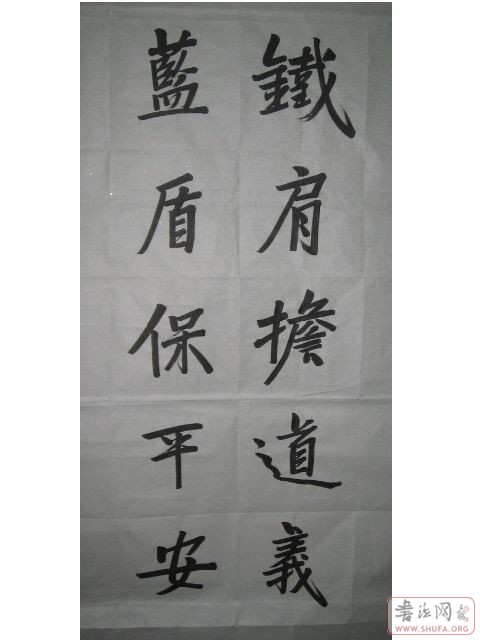 鐵肩擔道義
藍盾保平安
書法网
WWW.SHUFA.ORG